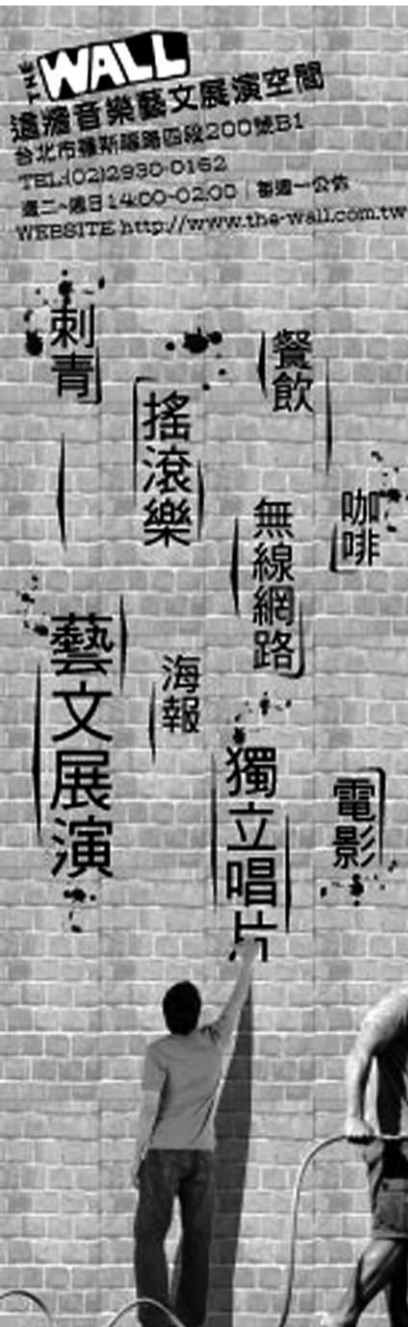 THE WALL
這牆音樂藝文展演空間
台北市羅斯福路四段200號B1
TEL:(02)2930-0162
週二~週日 14:00-02:00 | 每週一公休
WEBSITE http://www.the-wall.com.tw
刺青
餐飲
搖滾樂
咖啡
無線網路
藝文展演
海報
獨立唱片
電影